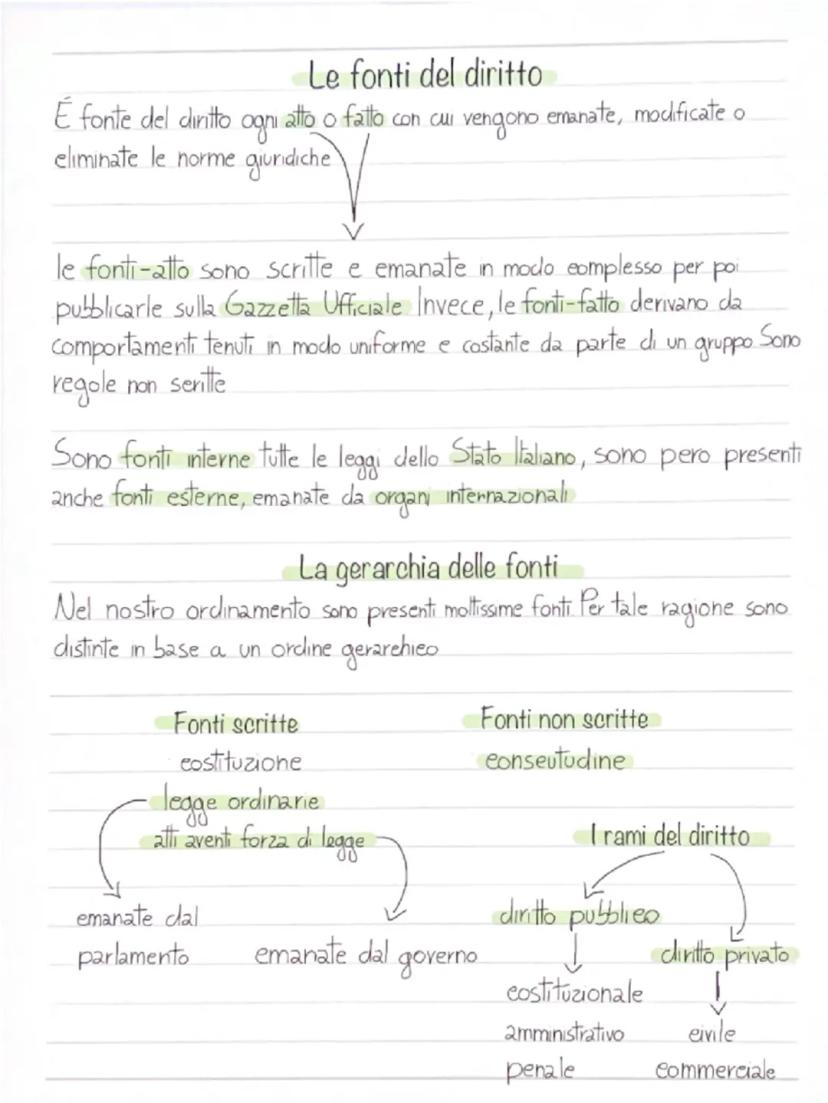 Le fonti del diritto
É fonte del diritto ogni atto o fatto con cui vengono emanate, modificate o
eliminate le norme giuridiche
le fonti-atto sono scritte e emanate in modo complesso per poi
pubblicarle sulla Gazzetta Ufficiale Invece, le fonti-fatto derivano da
comportamenti tenuti in modo uniforme e costante da parte di un gruppo Sono
regole non scritte
Sono fonti interne tutte le leggi dello Stato Italiano, sono pero presenti
anche fonti esterne, emanate da organi internazionali
La gerarchia delle fonti
Nel nostro ordinamento sono presenti moltissime fonti Per tale ragione sono
distinte in base a un ordine gerarchico
Fonti scritte
costituzione
legge ordinarie
atti aventi forza di legge
emanate dal
parlamento
emanate dal governo
Fonti non scritte
conseutudine
I rami del diritto
diritto pubblico
costituzionale
amministrativo
penale
diritto privato
civile
commerciale